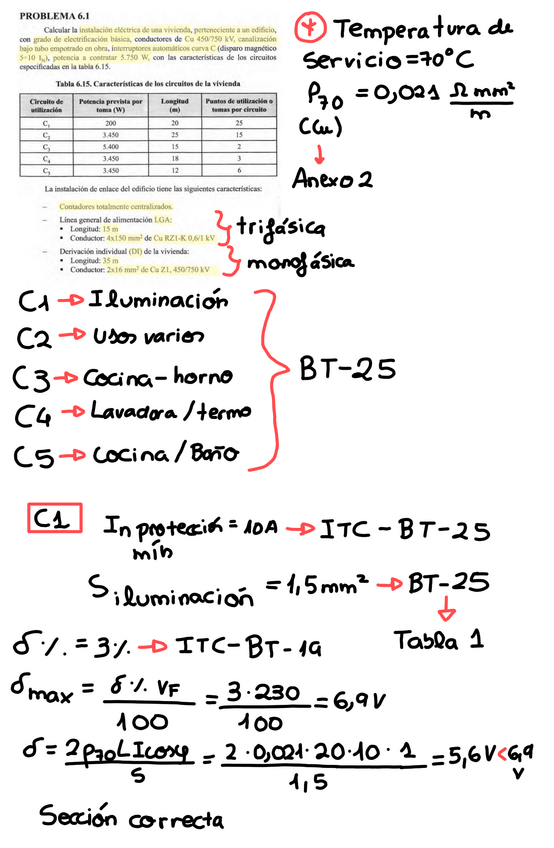 PROBLEMA 6.1
Calcular la instalación eléctrica de una vivienda, perteneciente a un edificio,
con grado de electrificación básica, conductores de Cu 450/750 kV, canalización
bajo tubo empotrado en obra, interruptores automáticos curva C (disparo magnético
5÷10 In), potencia a contratar 5.750 W, con las características de los circuitos
especificadas en la tabla 6.15.
Tabla 6.15. Características de los circuitos de la vivienda
Circuito de utilización | Potencia prevista por toma (W) | Longitud (m) | Puntos de utilización o tomas por circuito
C1 | 200 | 20 | 25
C2 | 3.450 | 25 | 15
C3 | 5.400 | 15 | 2
C4 | 3.450 | 18 | 3
C5 | 3.450 | 12 | 6
La instalación de enlace del edificio tiene las siguientes características:
– Contadores totalmente centralizados.
– Línea general de alimentación LGA:
• Longitud: 15 m
• Conductor: 4x150 mm² de Cu RZ1-K 0,6/1 kV
trifásica
– Derivación individual (DI) de la vivienda:
• Longitud: 35 m
• Conductor: 2x16 mm² de Cu Z1, 450/750 kV
monofásica
* Temperatura de
servicio = 70°C
ρ70 = 0,021 Ω mm²/m
(Cu)
↓
Anexo 2
C1 → Iluminación
C2 → Usos varios
C3 → Cocina-horno
C4 → Lavadora/termo
C5 → Cocina/Baño
BT-25
C1 In protección = 10A → ITC-BT-25
mín
S iluminación = 1,5 mm² → BT-25
↓
Tabla 1
δ% = 3% → ITC-BT-19
δmax = δ% VF / 100 = 3·230 / 100 = 6,9 V
δ = 2ρ70LIcosφ / S = 2·0,021·20·10·1 / 1,5 = 5,6 V < 6,9 V
Sección correcta